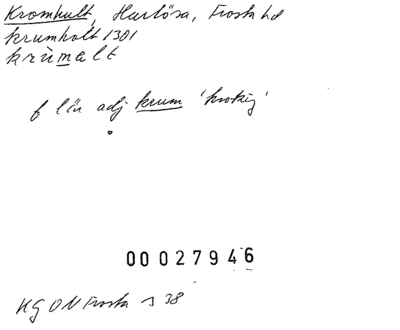 Kromhult, Harlösa, Frosta hd
krumholt 1301
krùmalt
f lin adj krum 'krokig'
00 027946
KG ON Frosta s 38